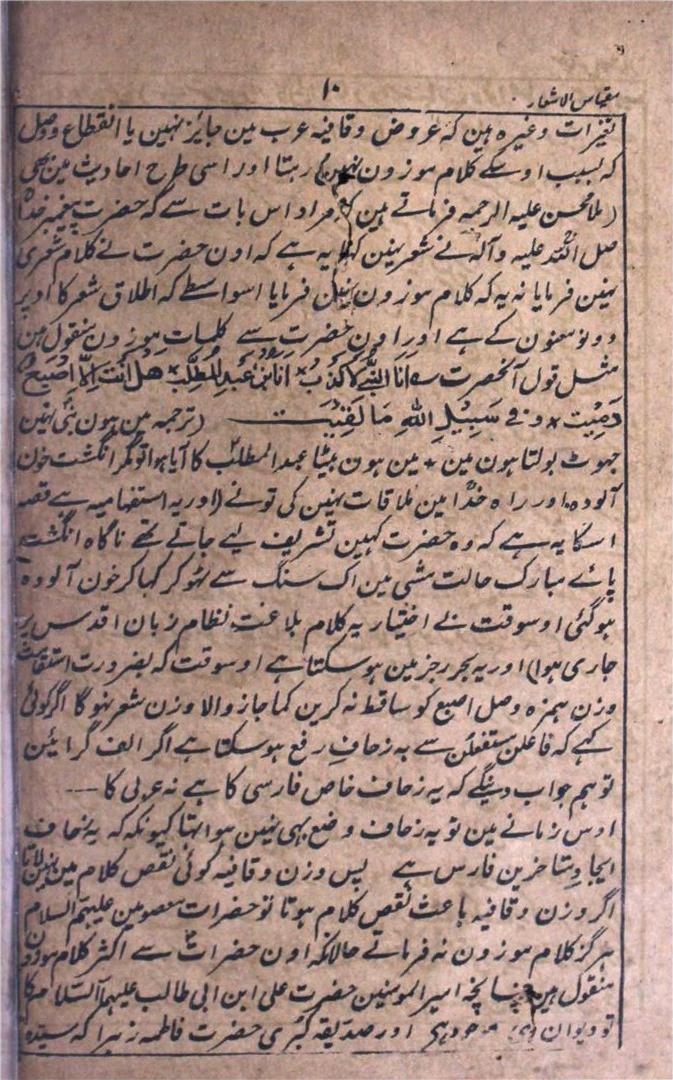 مقیاس الاشعار
۱۰
تغیرات وغیرہ ہین کہ عروض وقافیہ عرب مین جایز نہین یا انقطاع وصل
کہ بسبب اوسکے کلام موزون نہین رہتا اور اسی طرح احادیث مین بھی
(ملا محسن علیہ الرحمہ فرماتے ہین کہ مراد اس بات سے کہ حضرت پیغمبر خدا
صلی اللہ علیہ وآلہ نے شعر نہین کہا یہ ہے کہ اون حضرت نے کلام شعری
نہین فرمایا نہ یہ کہ کلام موزون نہین فرمایا اسواسطے کہ اطلاق شعر کا اوپر
دونو معنون کے ہے اور اون حضرت سے کلمات موزون منقول ہین
مثل قول آنحضرت سے اَنَا النَّبِیُّ لَا کَذِبُ * اَنَا بْنُ عَبْدِ الْمُطَّلِبْ * هَلْ اَنْتِ اِلَّا اِصْبَعٌ
دَمِیْتِ * وَ فِی سَبِیْلِ اللّٰہِ مَا لَقِیْتِ (ترجمہ مین ہون نبی نہین
جھوٹ بولتا ہون مین * مین ہون بیٹا عبدالمطلب کا آیا ہو تو مگر انگشت خون
آلودہ اور راہ خدا مین ملاقات نہین کی تونے (اور یہ استفہامیہ ہے قصہ
اسکا یہ ہے کہ وہ حضرت کہین تشریف لیے جاتے تھے ناگاہ انگشت
پائے مبارک حالت مشی مین اک سنگ سے ٹھوکر کہا کر خون آلودہ
ہوگئی اوسوقت بے اختیار یہ کلام بلاغت نظام زبان اقدس پر
جاری ہوا) اور یہ بحر رجز مین ہوسکتا ہے اوسوقت کہ بضرورت استقامت
وزن ہمزہ وصل اصبع کو ساقط نہ کرین کما جاز والا وزن شعر نہوگا اگر کوئی
کہے کہ فاعلن مستفعلن سے بہ زحاف رفع ہوسکتا ہے اگر الف گرائین
تو ہم جواب دینگے کہ یہ زحاف خاص فارسی کا ہے نہ عربی کا ---
اوس زمانے مین تو یہ زحاف وضع بہی نہین ہوا تہا کیونکہ کہ یہ زحاف
ایجاد متاخرین فارس ہے پس وزن وقافیہ کوئی نقص کلام مین نہین لاتا
اگر وزن وقافیہ باعث نقص کلام ہوتا تو حضرات معصومین علیہم السلام
ہرگز کلام موزون نہ فرماتے حالانکہ اون حضرات سے اکثر کلام موزون
منقول ہین چنانچہ امیر المومنین حضرت علی ابن ابی طالب علیہما السلام کا
تو دیوان موجود ہی اور صدیقہ کبری حضرت فاطمہ زہرا کہ سیدہ